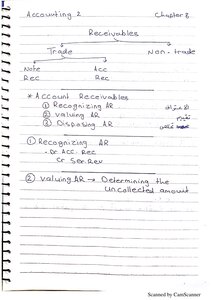 Accounting 2 Chapter 8
Receivables
Trade Non-trade
Note Acc
Rec Rec
* Account Receivables
① Recognizing AR
② valuing AR تقييم
③ Disposing AR
① Recognizing AR
- Dr Acc. Rec
Cr Ser. Rev
② valuing AR → Determining the
uncollected amount
Scanned by CamScanner